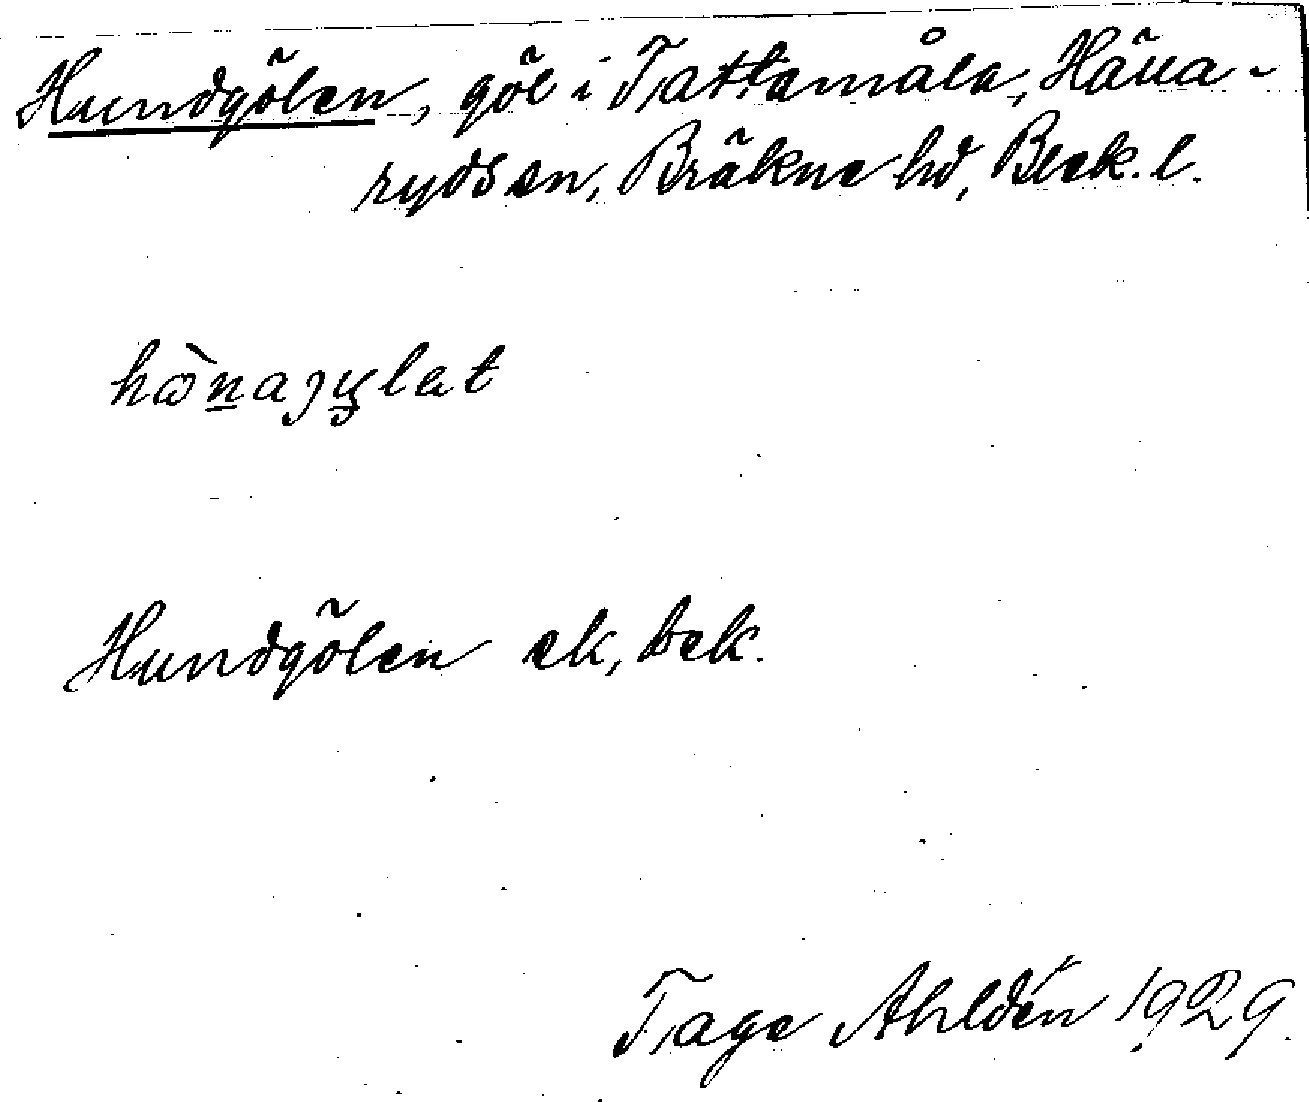 Hundgölen, göl i Tattamåla, Hälla-
ryds sn, Bräkne hd, Blek. l.
hò̵n̲aȷy̲lat
Hundgölen ek, bek.
Tage Ahldén 1929.